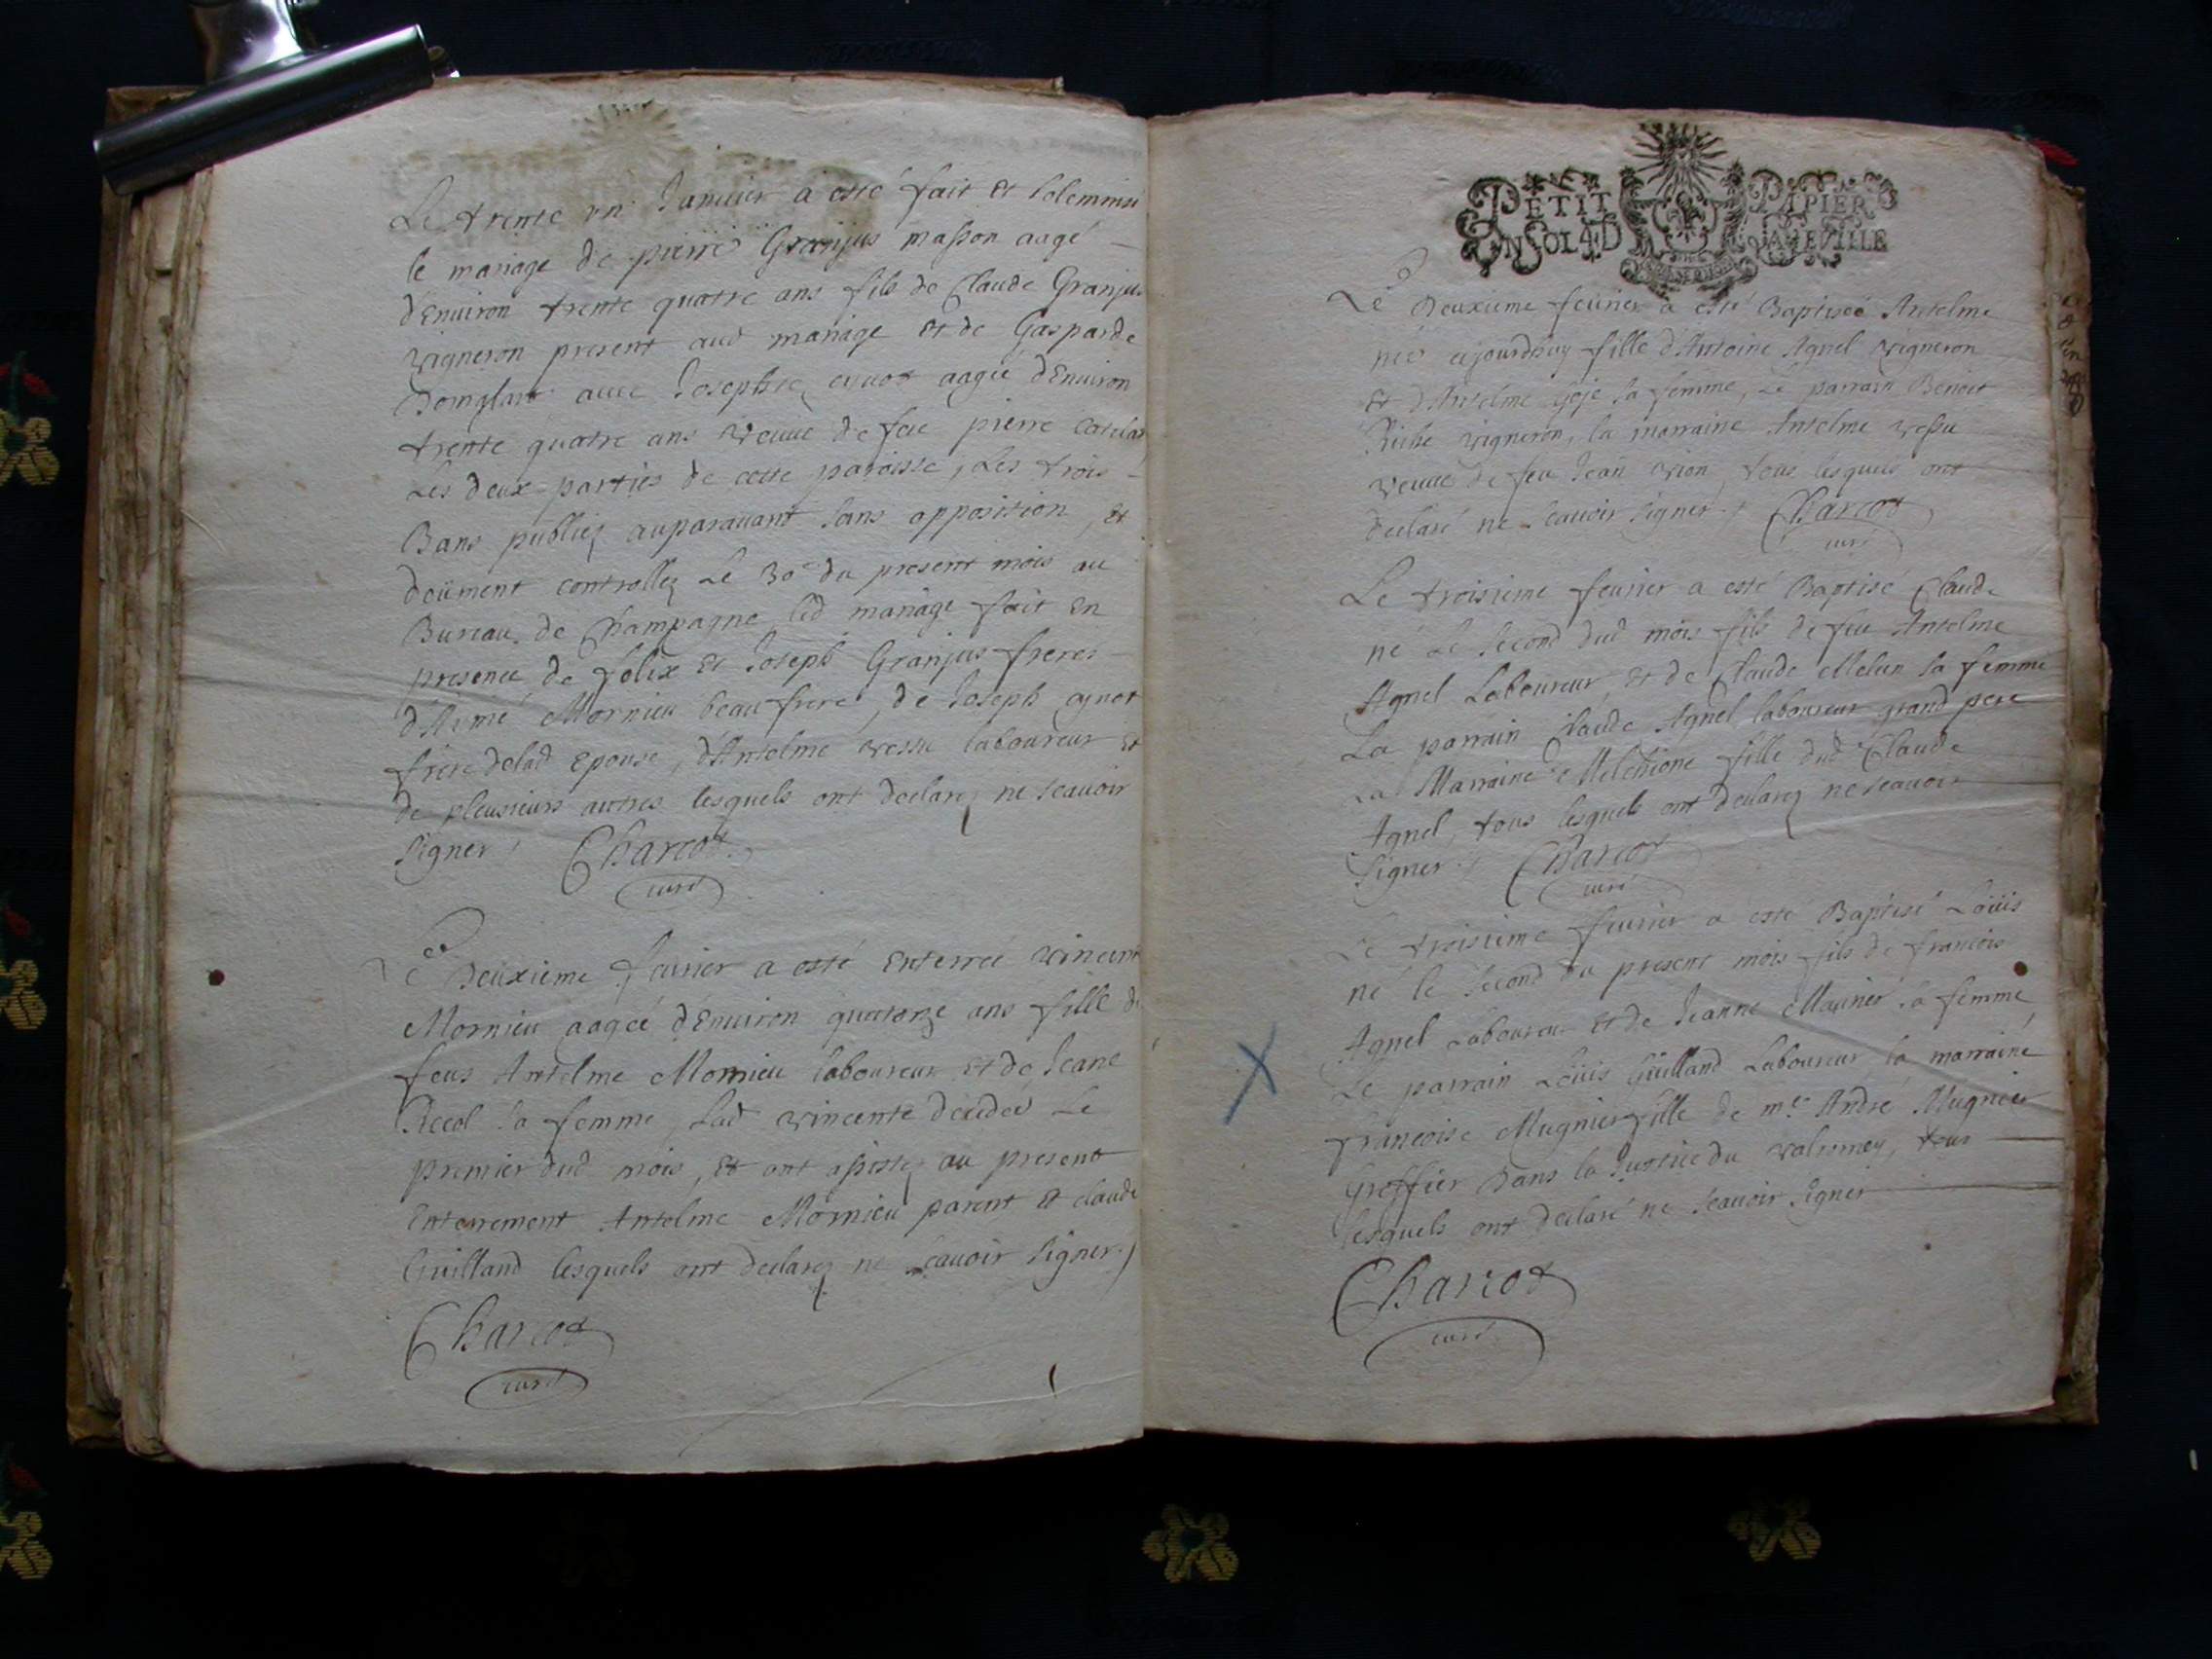 Le trente un Januier a esté fait et solemnisé
le mariage de pierre Granjus masson aagé
d'Enuiron trente quatre ans fils de Claude Granjus
vigneron present aud mariage et de Gasparde
auec Josephte cynot aagée d'Enuiron
trente quatre ans veuue de feu pierre
Les deux parties de cette paroisse, Les trois
Bans publiez auparauant sans opposition, et
doüment controllez Le 30e du present mois au
Bureau de Champagne led mariage fait en
presence de felix et Joseph Granjus freres
d'Aimé Mornieu beaufrere, de Joseph cynot
frere delad Epouse, d'Antelme vessu laboureur et
de pleusieurs autres lesquels ont declarez ne scauoir
signer, Charcot
curé
Le Deuxieme feurier a esté Enterrée vincente
Mornieu aagée d'Enuiron quatorze ans fille de
feus Antelme Mornieu laboureur et de Jeane
sa femme, Lad vincente decedée Le
premier dud mois, et ont assistez au present
Enterrement Antelme Mornieu parent et claude
Guilland lesquels ont declarez ne scauoir signer,
Charcot
curé
PETIT PAPIER
UN SOL 4 D LA FEVILLE
Le Deuxieme feurier a esté Baptisée Antelme
née cejourdhuy fille d'Antoine Agnel vigneron
et d'Antelme Goje sa femme, Le parrain Benoit
Riche vigneron, la marraine Antelme vessu
veuue de feu Jean vion, tous lesquels ont
declaré ne scauoir signer, Charcot
curé
Le troisieme feurier a esté Baptisé Claude
né Le second dud mois fils de feu Antelme
Agnel Laboureur, et de Claude Melun sa femme
Le parrain Claude Agnel laboureur grand pere
La Marraine Melchione fille dud Claude
Agnel, tous lesquels ont declarez ne scauoir
signer, Charcot
curé
Le troisieme feurier a esté Baptisé Loüis
né le second du present mois fils de francois
Agnel Laboureur et de Jeanne sa femme,
Le parrain Loüis Guilland Laboureur, la marraine
francoise Mugnier fille de me André Mugnier
Greffier Dans la Justice du valromey, tous
lesquels ont declaré ne scauoir signer
Charcot
curé